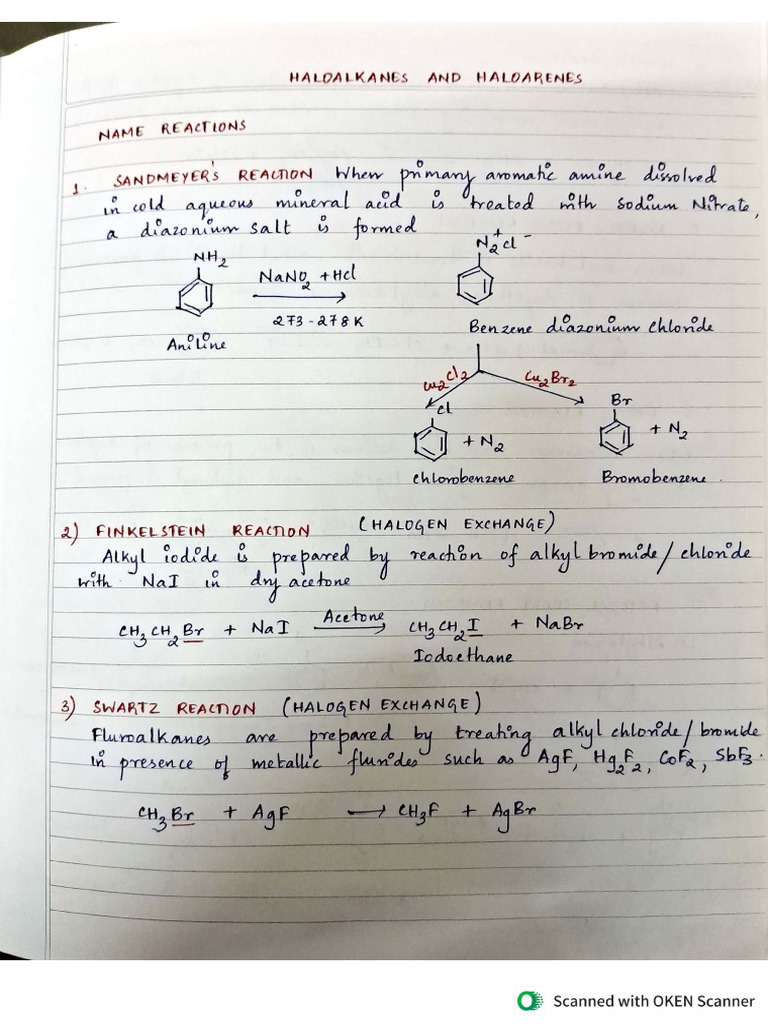 HALOALKANES AND HALOARENES
NAME REACTIONS
1. SANDMEYER'S REACTION When primary aromatic amine dissolved
in cold aqueous mineral acid is treated with Sodium Nitrate,
a diazonium salt is formed
NH2
N2+Cl-
NaNO2 + HCl
273-278K
Aniline
Benzene diazonium chloride
Cu2Cl2
Cu2Br2
Cl
Br
+ N2
+ N2
chlorobenzene
Bromobenzene.
2) FINKELSTEIN REACTION (HALOGEN EXCHANGE)
Alkyl iodide is prepared by reaction of alkyl bromide/chloride
with NaI in dry acetone
CH3CH2Br + NaI Acetone → CH3CH2I + NaBr
Iodoethane
3) SWARTZ REACTION (HALOGEN EXCHANGE)
Fluroalkanes are prepared by treating alkyl chloride/bromide
in presence of metallic flurides such as AgF, Hg2F2, CoF2, SbF3.
CH3Br + AgF → CH3F + AgBr
Scanned with OKEN Scanner